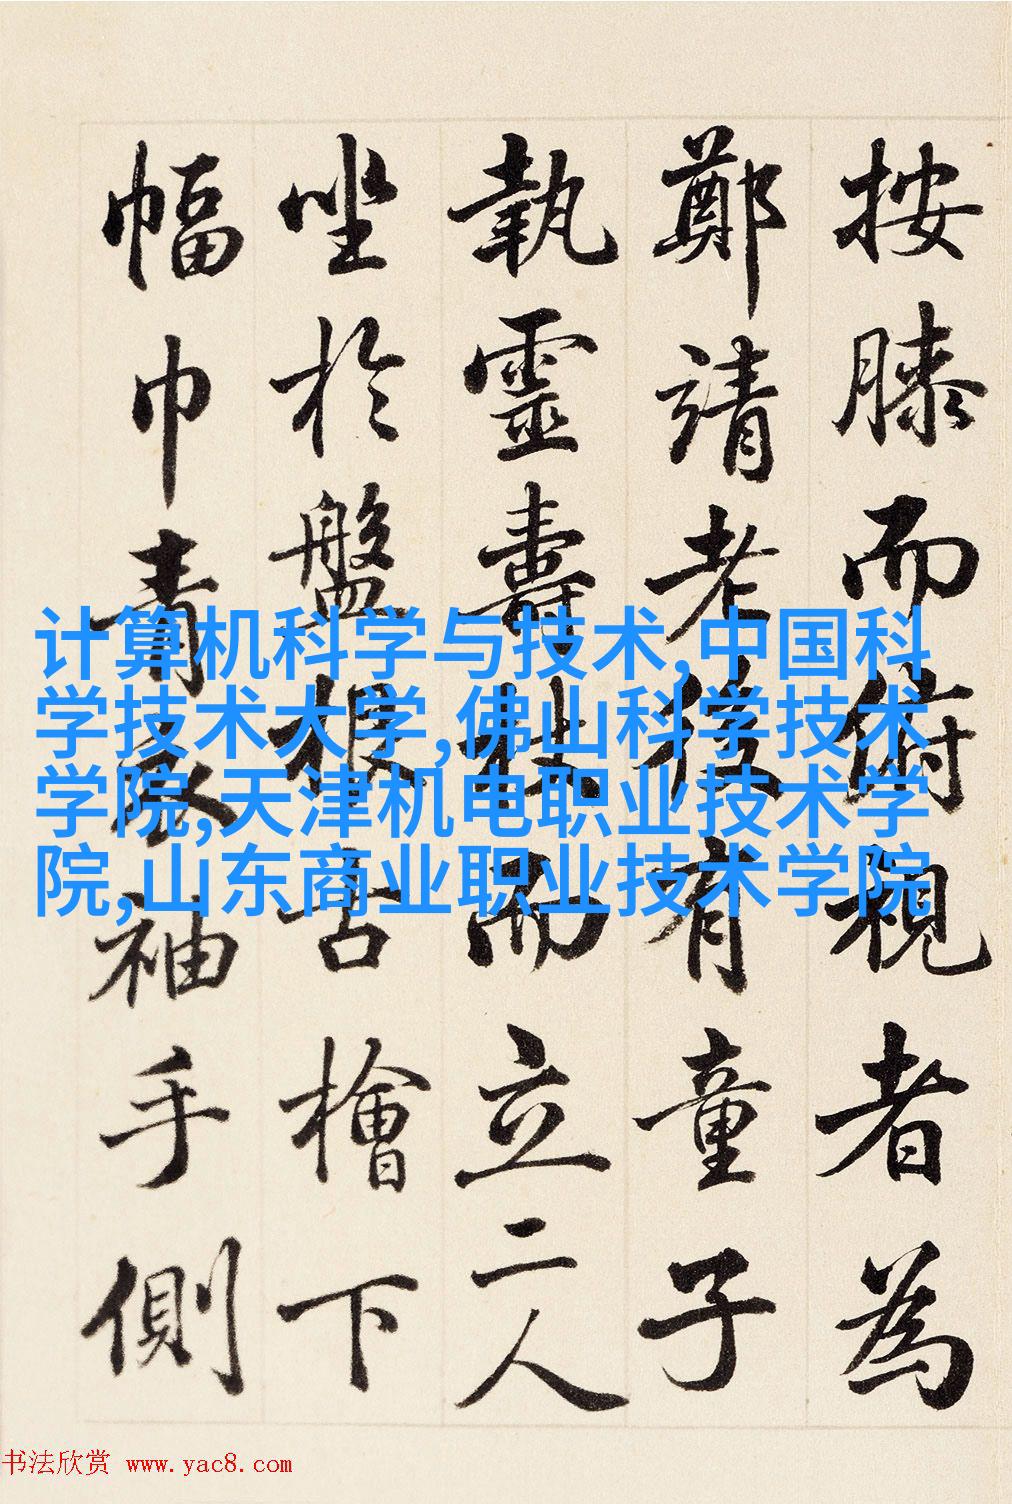 按膝而俯視者為
鄭靖老後有童子
執靈壽杖而立二人
坐於盤根古檜下
幅巾青衣袖手側
计算机科学与技术,中国科
学技术大学,佛山科学技术
学院,天津机电职业技术学
院,山东商业职业技术学院
书法欣赏 www.yac8.com